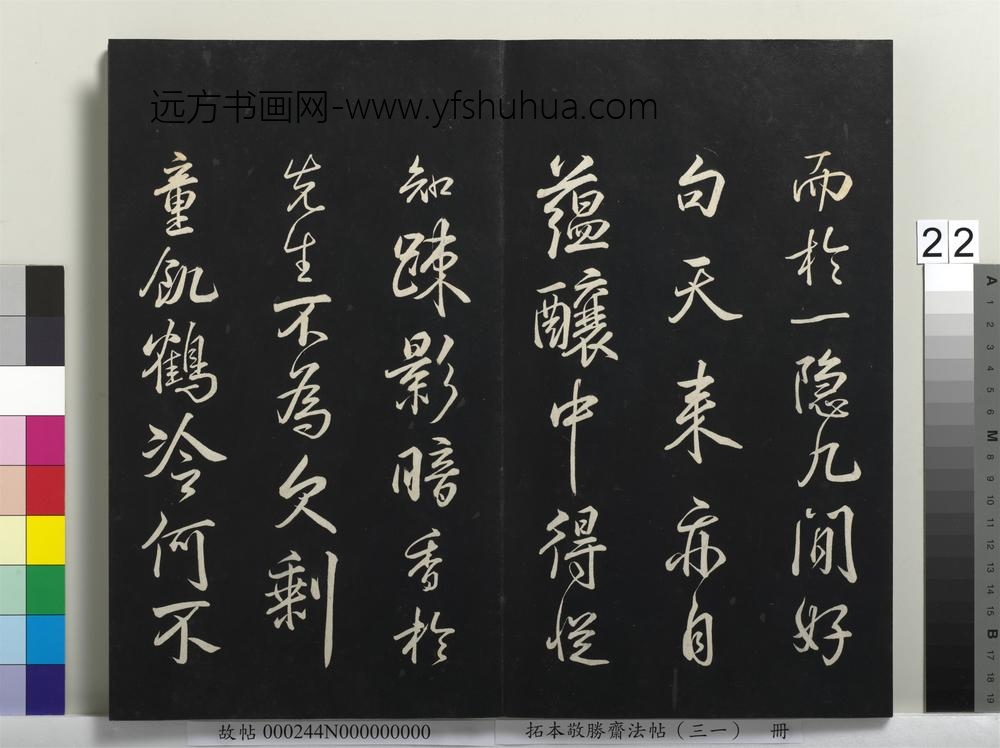 远方书画网-www.yfshuhua.com
而於一隐九闲好
句天来亦自
蕴酿中得从
知疎影暗香於
先生不為欠剩
童飢鶴冷何不
22
故帖 000244N000000000
拓本敬勝齋法帖（三一） 冊
A 1 2 3 4 5 6 M 8 9 10 11 12 13 14 15 B 17 18 19